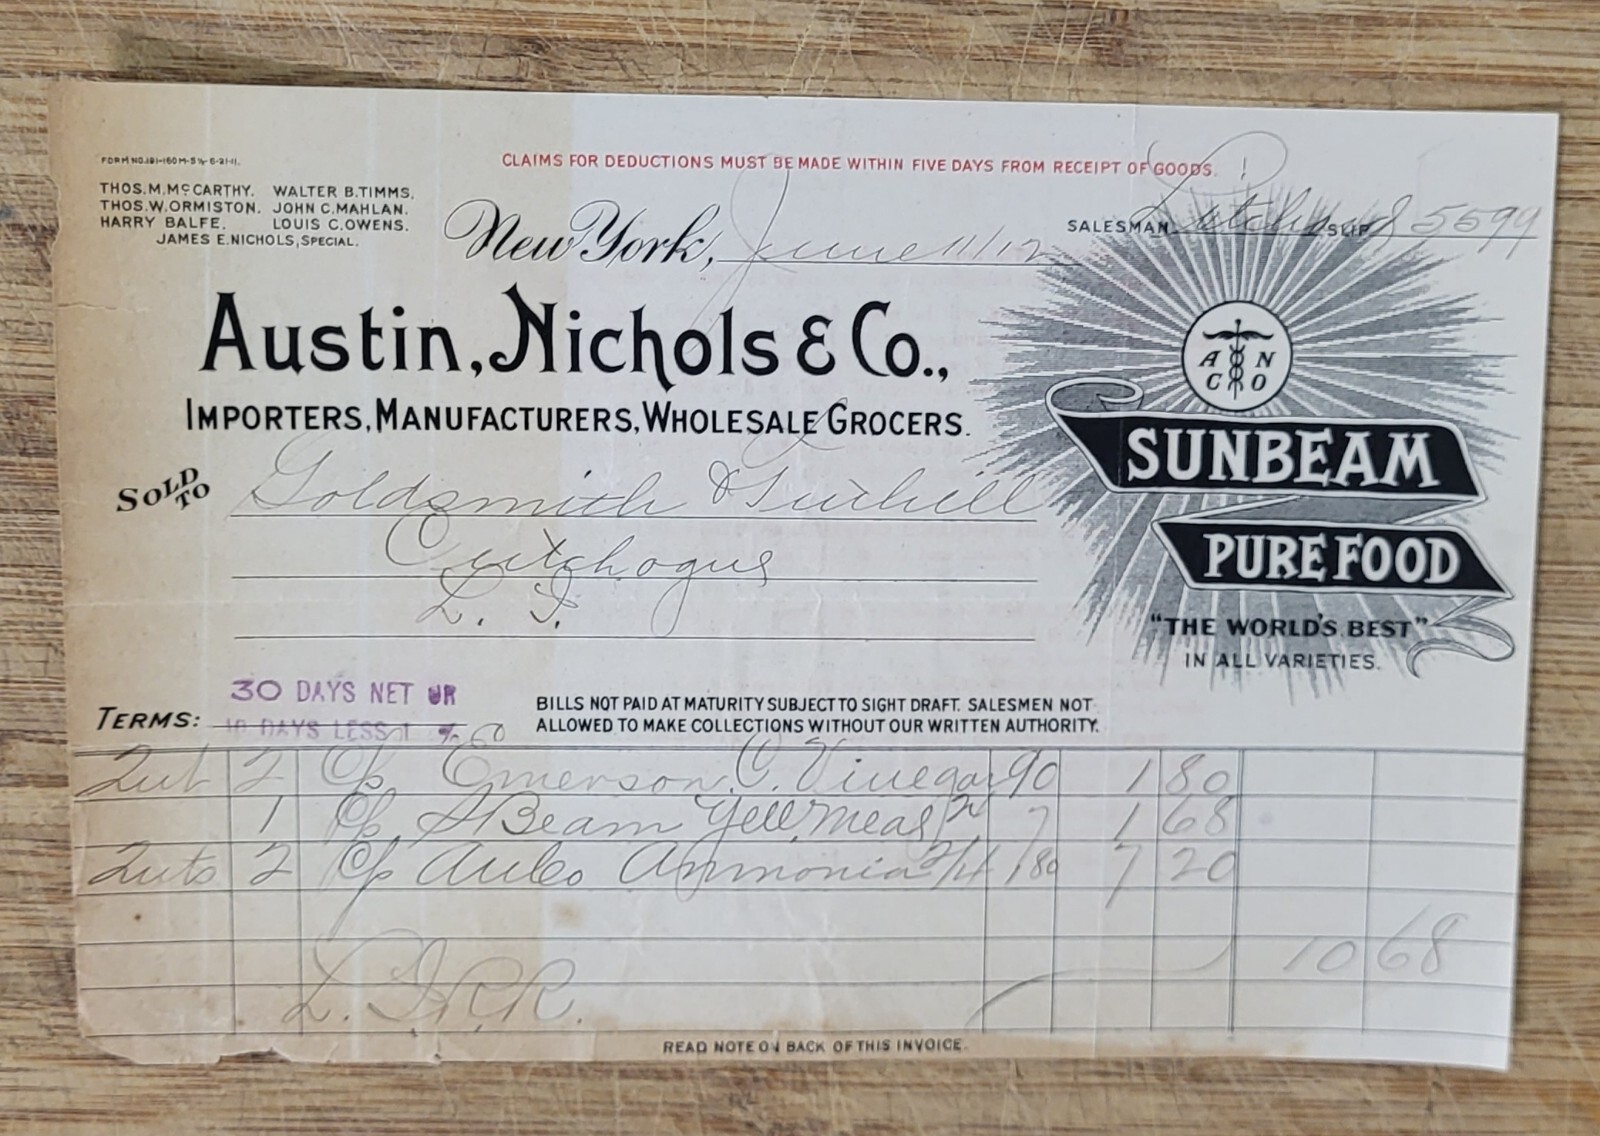 FORM NO. 181-160M-5½-6-21-11.
CLAIMS FOR DEDUCTIONS MUST BE MADE WITHIN FIVE DAYS FROM RECEIPT OF GOODS.
THOS. M. McCARTHY. WALTER B. TIMMS.
THOS. W. ORMISTON. JOHN C. MAHLAN.
HARRY BALFE. LOUIS C. OWENS.
JAMES E. NICHOLS, SPECIAL.
New York, June 11/12
SALESMAN SLIP 85699
Austin, Nichols & Co.,
IMPORTERS, MANUFACTURERS, WHOLESALE GROCERS.
A N
C O
SUNBEAM
PURE FOOD
"THE WORLD'S BEST"
IN ALL VARIETIES.
SOLD TO Goldsmith & Tuthill
Cutchogue
L. I.
TERMS: 30 DAYS NET OR
10 DAYS LESS 1 %
BILLS NOT PAID AT MATURITY SUBJECT TO SIGHT DRAFT. SALESMEN NOT
ALLOWED TO MAKE COLLECTIONS WITHOUT OUR WRITTEN AUTHORITY.
2 C/s Emerson C. Vinegar 90 1 80
1 C/s S Beam Yell Meal 7 1 68
2 C/s Ammonia 180 7 20
10 68
L. I. R. R.
READ NOTE ON BACK OF THIS INVOICE.